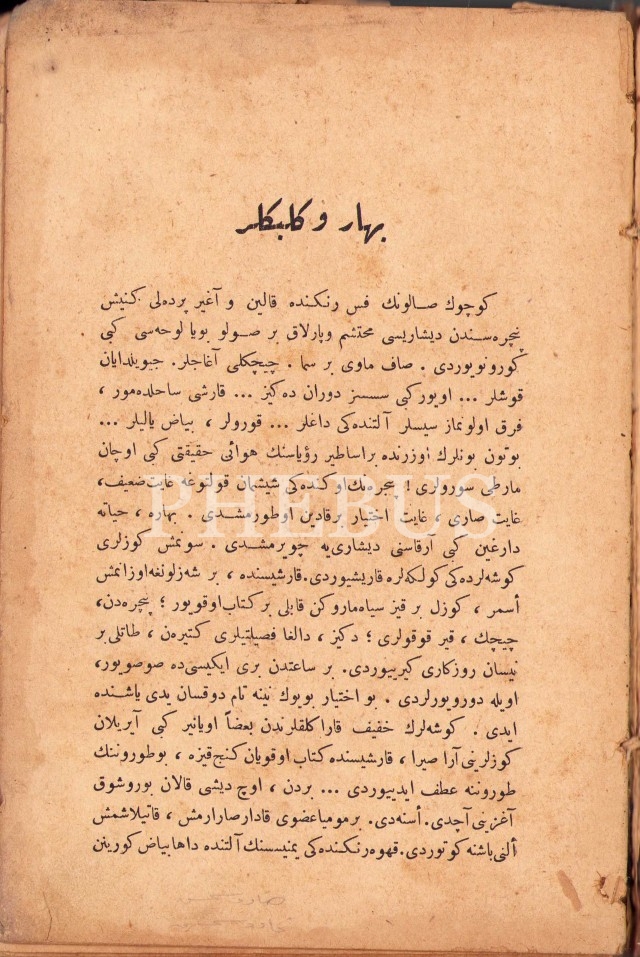 بهار و كلبكلر
كوچوك صالونك فس رنكنده قالين و آغير پرده‌لى كنيش
پنجره‌سندن ديشاريسى محتشم وپارلاق بر صولو بويا لوحه‌سى كبى
كورونويوردى . صاف ماوى بر سما . چيچكلى آغاجلر. جيويلدايان
قوشلر ... اويور كبى سسسز دوران ده‌كيز ... قارشى ساحلده مور ،
فرق اولونماز سيسلر آلتنده‌كى داغلر ... قورولر ، بياض ياليلر ...
بوتون بونلرك اوزرنده براساطير رؤياسنك هوائى حقيقتى كبى اوچان
مارطى سورولرى ! پنجره‌نك اوكنده‌كى شيشمان قولتوغه غايت ضعيف،
غايت صارى ، غايت اختيار برقادين اوطورمشدى . بهاره ، حياته
دارغين كبى آرقاسنى ديشارى‌يه چويرمشدى . سونمش كوزلرى
كوشه‌لرده‌كى كولكه‌لره قاريشيوردى. قارشيسنده ، بر شه‌زلونغه اوزانمش
أسمر ، كوزل بر قيز سياه ماروكن قابلى بر كتاب اوقويور ؛ پنجره‌دن،
چيچك ، قير قوقولرى ؛ دكيز ، دالغا فصيلتيلرى كتيره‌ن ، طاتلى بر
نيسان روزكارى كيرييوردى. بر ساعتدن برى ايكيسى‌ده صوصويور،
اويله دورويورلردى . بو اختيار بويوك نينه تام دوقسان يدى ياشنده
ايدى . كوشه‌لرك خفيف قاراكلقلرندن بعضاً اويانير كبى آيريلان
كوزلرينى آرا صيرا ، قارشيسنده كتاب اوقويان كنج قيزه ، بو طوروننك
طوروننه عطف ايدييوردى ... بردن ، اوچ ديشى قالان بوروشوق
آغزينى آچدى. أسنه‌دى. بر موميا عضوى قادار صارارمش ، قاتيلاشمش
ألنى باشنه كوتوردى. قهوه رنكنده‌كى يمنيسنك آلتنده داها بياض كورينن
PHEBUS